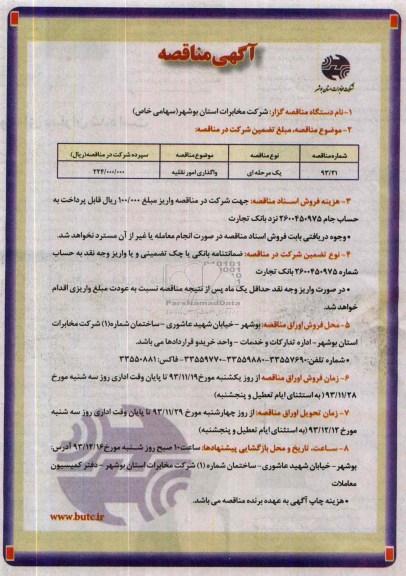 آگهی مناقصه
شرکت مخابرات استان بوشهر
۱-نام دستگاه مناقصه گزار: شرکت مخابرات استان بوشهر(سهامی خاص)
۲-موضوع مناقصه، مبلغ تضمین شرکت در مناقصه:
شماره مناقصه نوع مناقصه موضوع مناقصه سپرده شرکت در مناقصه(ریال)
۹۳/۲۱ یک مرحله ای واگذاری امور نقلیه ۲۲۴/۰۰۰/۰۰۰
۳- هزینه فروش اسناد مناقصه: جهت شرکت در مناقصه واریز مبلغ ۱۰۰/۰۰۰ ریال قابل پرداخت به
حساب جام ۲۶۰۰۴۵۰۹۷۵ نزد بانک تجارت
•وجوه دریافتی بابت فروش اسناد مناقصه در صورت انجام معامله یا غیر از آن مسترد نخواهد شد.
۴- نوع تضمین شرکت در مناقصه: ضمانتنامه بانکی یا چک تضمینی و یا واریز وجه نقد به حساب
شماره ۲۶۰۰۴۵۰۹۷۵ بانک تجارت
• در صورت واریز وجه نقد حداقل یک ماه پس از نتیجه مناقصه نسبت به عودت مبلغ واریزی اقدام
خواهد شد.
۵- محل فروش اوراق مناقصه: بوشهر - خیابان شهید عاشوری - ساختمان شماره(۱) شرکت مخابرات
استان بوشهر - اداره تدارکات و خدمات - واحد خرید و قراردادها می باشد.
•شماره تلفن:۳۳۵۵۷۶۹۰-۳۳۵۵۹۸۸۰-۳۳۵۵۹۷۷۰-فاکس:۳۳۵۵۰۸۸۱
۶- زمان فروش اوراق مناقصه از روز یکشنبه مورخ ۹۳/۱۱/۱۹ تا پایان وقت اداری روز سه شنبه مورخ
۹۳/۱۱/۲۸ (به استثنای ایام تعطیل و پنجشنبه)
۷- زمان تحویل اوراق مناقصه: از روز چهارشنبه مورخ ۹۳/۱۱/۲۹ تا پایان وقت اداری روز سه شنبه
مورخ ۹۳/۱۲/۱۲ (به استثنای ایام تعطیل و پنجشنبه)
۸- ساعت، تاریخ و محل بازگشایی پیشنهادها: ساعت ۱۰ صبح روز شنبه مورخ ۹۳/۱۲/۱۶ آدرس:
بوشهر - خیابان شهید عاشوری- ساختمان شماره (۱) شرکت مخابرات استان بوشهر - دفتر کمیسیون
معاملات
•هزینه چاپ آگهی به عهده برنده مناقصه می باشد.
www.butc.ir
ParsNamadData